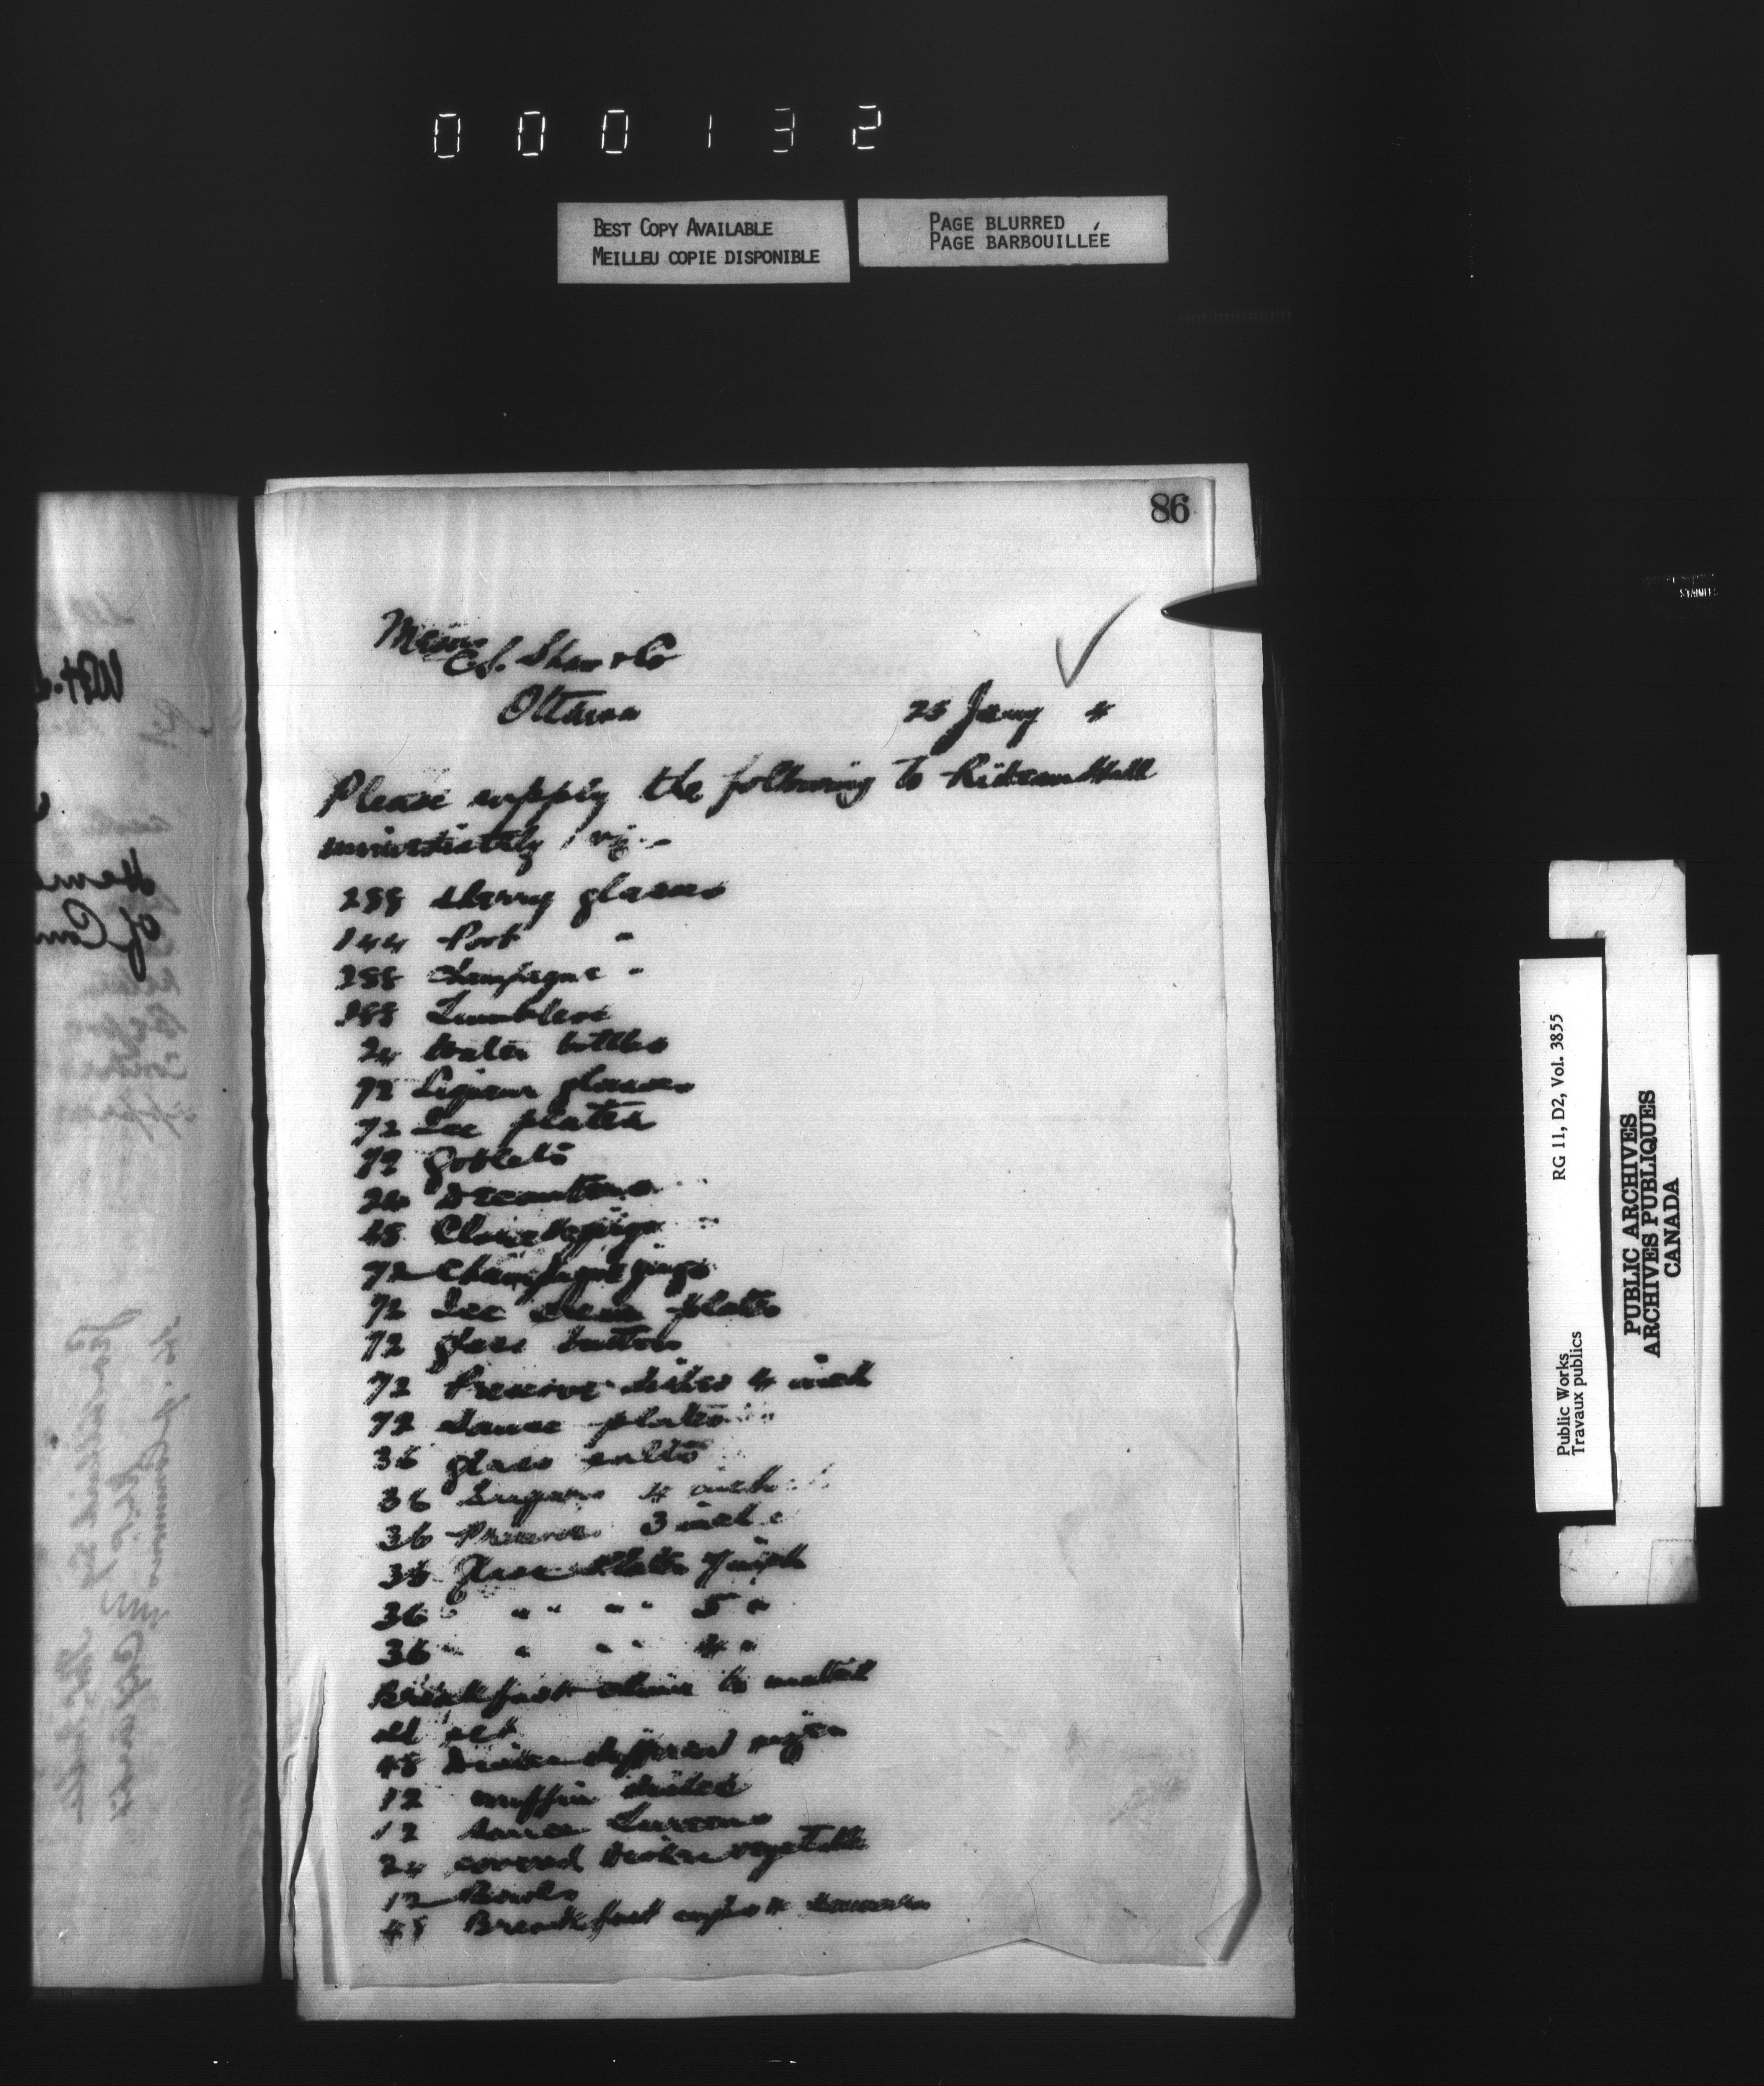 000132
BEST COPY AVAILABLE
MEILLEU COPIE DISPONIBLE
PAGE BLURRED
PAGE BARBOUILLÉE
86
Messrs
C.S. Shaw & Co
Ottawa
25 Jany 4
Please supply the following to Rideau Hall
immediately, viz.-
288 sherry glasses
144 Port "
288 Champagne "
288 Tumblers
24 Water bottles
72 Liqueur glasses
72 Ice plates
72 goblets
24 Decanters
48 Claret jugs
72 Champagne jugs
72 Ice cream plates
72 glass butters
72 Preserve dishes 4 inch
72 Sauce plates
36 glass salts
36 Sugars 4 inch
36 Preserve 3 inch
36 Glass Plates 7 inch
36 " " " " 5 "
36 " " " " 4 "
Breakfast china to match
old set
48 Dishes different sizes
12 muffin dishes
12 sauce Tureens
24 covered dishes vegetable
12 Bowls
48 Breakfast cups & saucers
Public Works
Travaux publics
RG 11, D2, Vol. 3855
PUBLIC ARCHIVES
ARCHIVES PUBLIQUES
CANADA